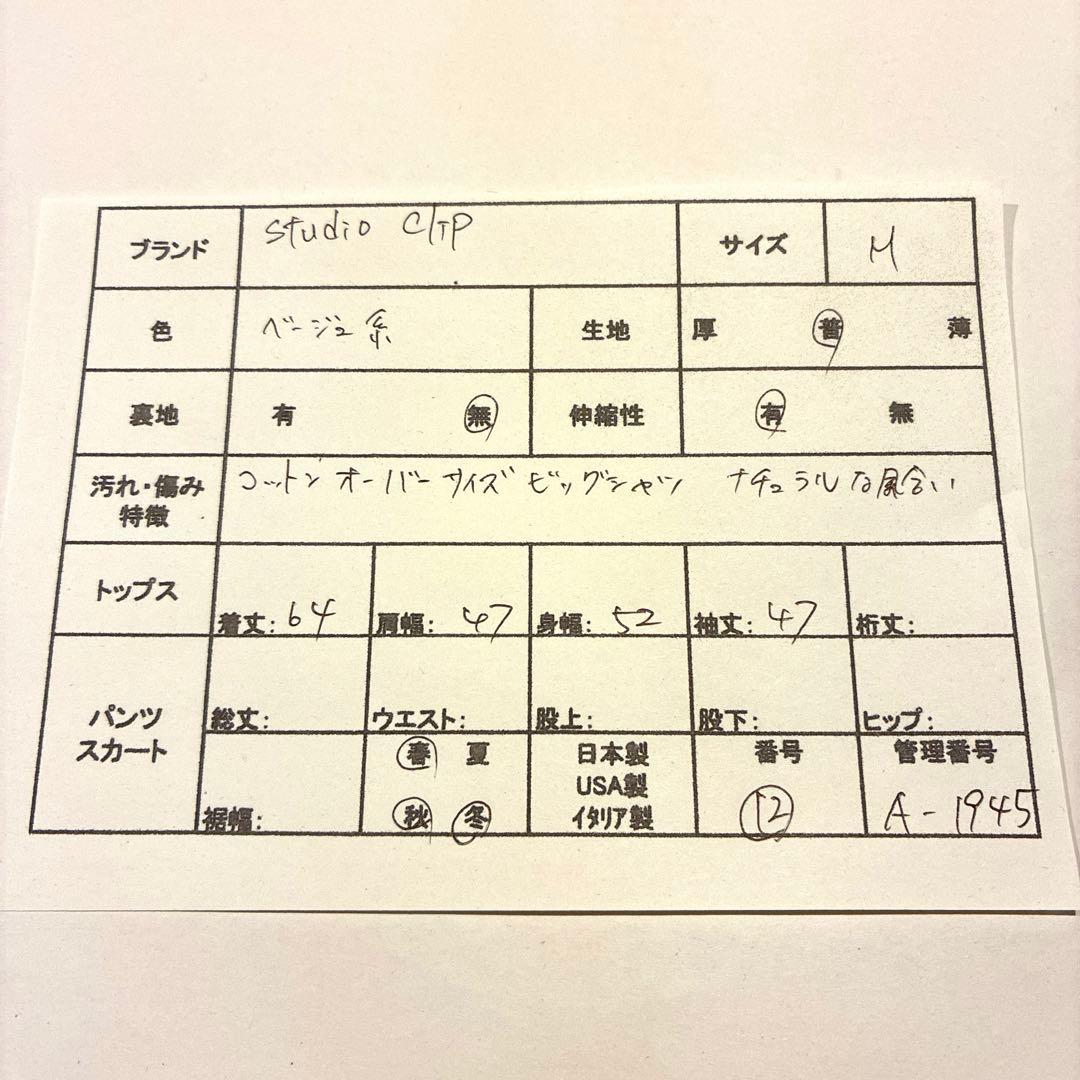 ブランド studio clip サイズ M
色 ベージュ系 生地 厚 普 薄
裏地 有 無 伸縮性 有 無
汚れ・傷み
特徴 コットン オーバーサイズ ビッグシャツ ナチュラルな風合い
トップス 着丈:64 肩幅:47 身幅:52 袖丈:47 裄丈:
パンツ
スカート
総丈: ウエスト: 股上: 股下: ヒップ:
裾幅:
春 夏
秋 冬
日本製
USA製
イタリア製
番号
12
管理番号
A-1945